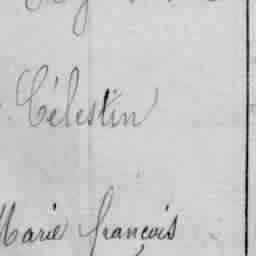 Célestin
Marie françois